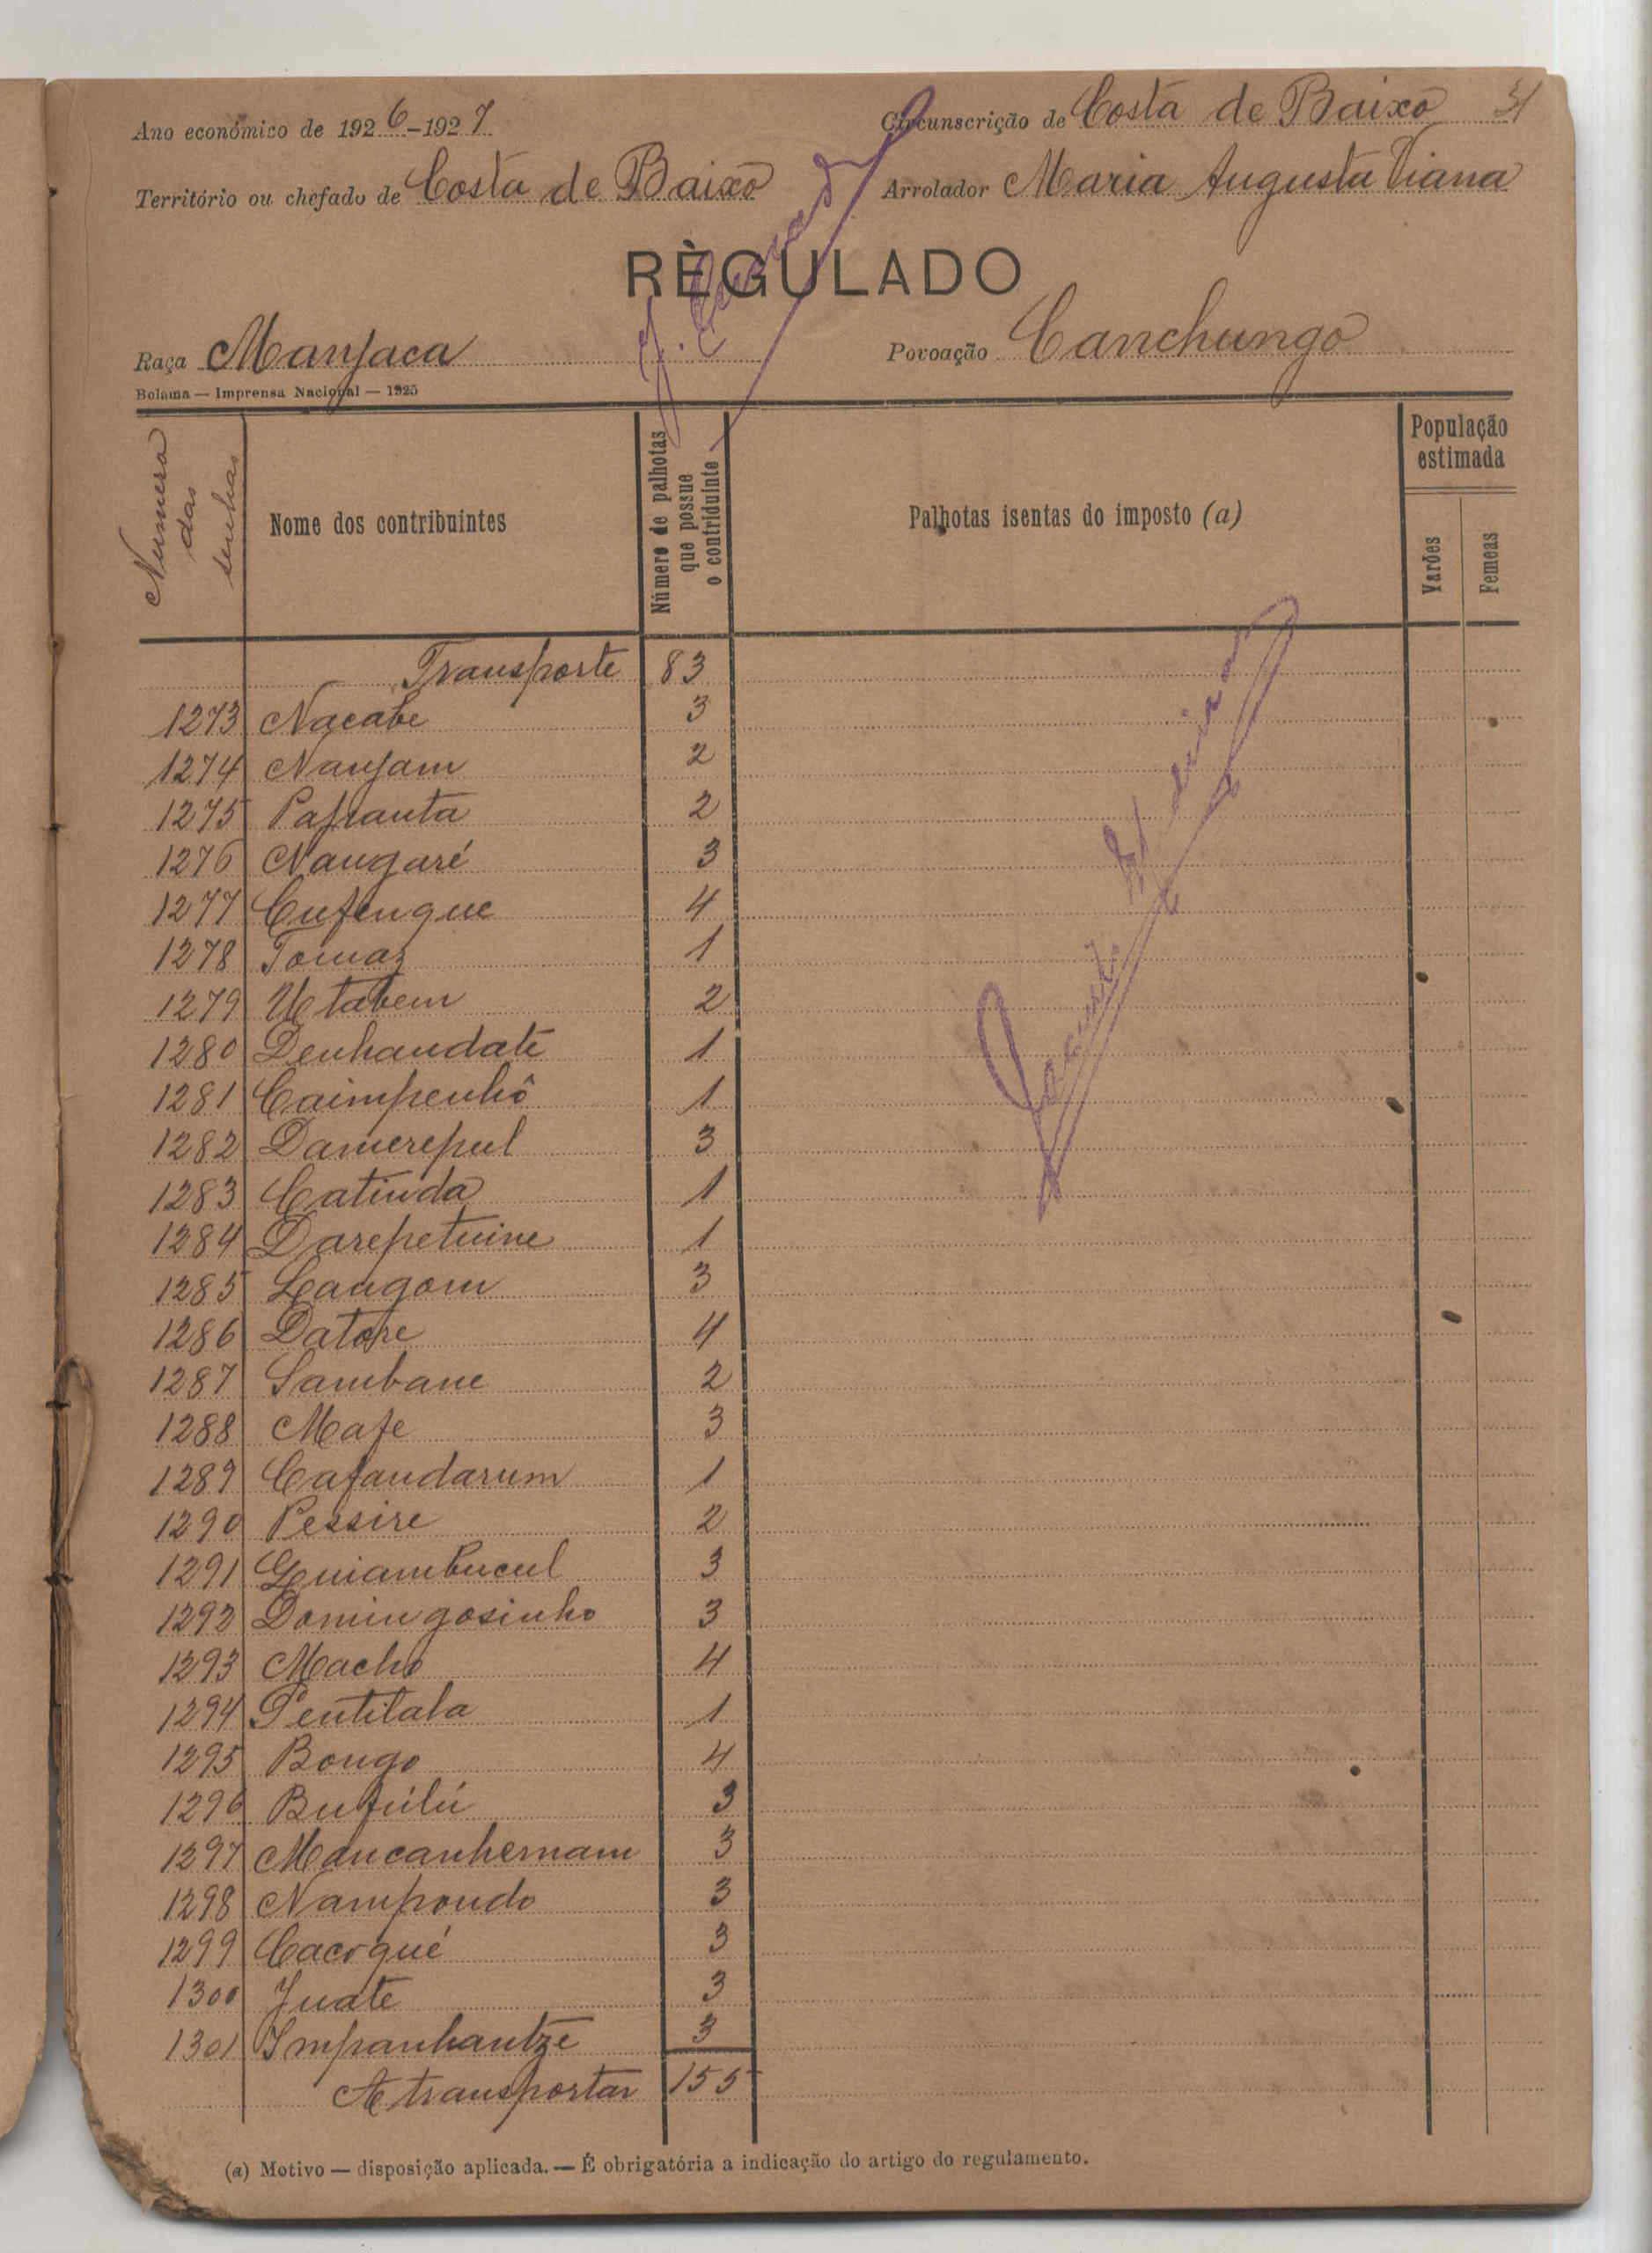 Ano económico de 1926-1927 Circunscrição de Costa de Baixo 31
Território ou chefado de Costa de Baixo Arrolador Maria Augusta Viana
RÈGULADO
Raça Manjaca Povoação Canchungo
Bolama — Imprensa Nacional — 1925
Numero das senhas
Nome dos contribuintes
Número de palhotas que possue o contriduinte
Palhotas isentas do imposto (a)
População estimada
Varões
Femeas
Transporte 83
1273 Nacabe 3
1274 Nanjam 2
1275 Pafranta 2
1276 Nangaré 3
1277 Cufengue 4
1278 Tomaz 1
1279 Utabem 2
1280 Denhandate 1
1281 Caimpenhô 1
1282 Damerepul 3
1283 Catinda 1
1284 Darepetuine 1
1285 Langom 3
1286 Datope 4
1287 Sambane 2
1288 Mafe 3
1289 Cafandarum 1
1290 Pessire 2
1291 Guiambucul 3
1292 Domingosinho 3
1293 Macho 4
1294 Pentilala 1
1295 Bongo 4
1296 Bufúlú 3
1297 Mancanhernam 3
1298 Nampondo 3
1299 Cacoqué 3
1300 Juate 3
1301 Impanhantze 3
A transportar 155
(a) Motivo — disposição aplicada. — É obrigatória a indicação do artigo do regulamento.